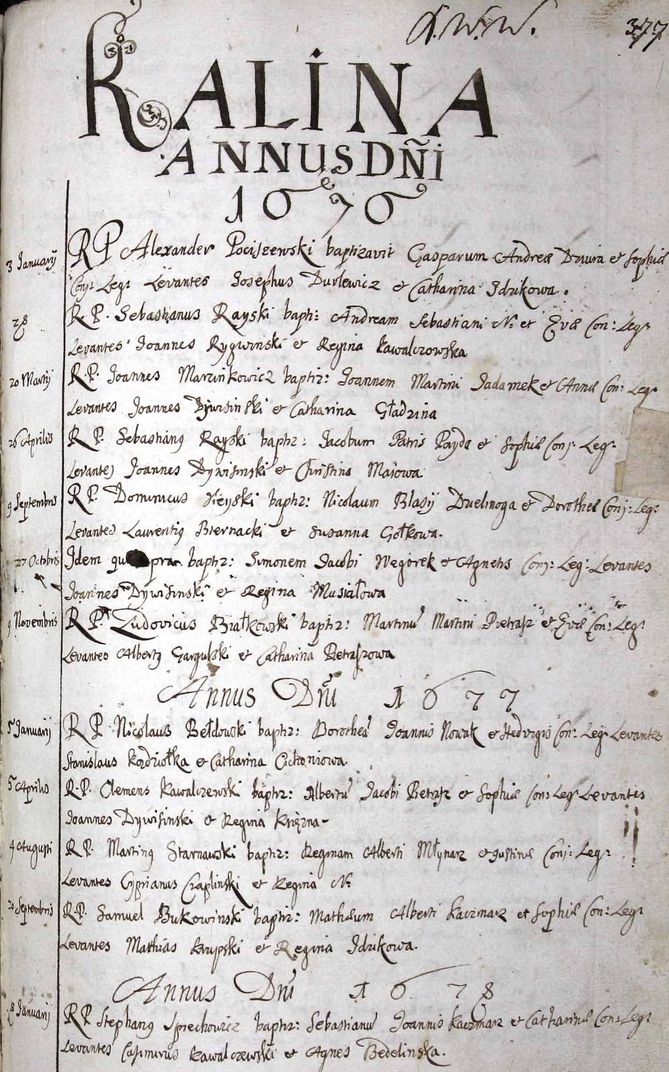 377
KALINA
ANNUS DÑI
1676
3 Januarij RP Alexander Pociszewski baptizavit Gasparum Andreæ Dziura et Sophiæ
Conj: Leg: Levantes Josephus Durlewicz et Catharina Idzikowa.
28 R.P. Sebastianus Rayski bapt: Andream Sebastiani N: et Evæ Con: Leg:
Levantes Joannes Rygwinski et Regina Kawalczowska
20 Martij R.P. Joannes Marcinkowicz baptz: Joannem Martini Jadamek et Annæ Con: Leg:
Levantes Joannes Dywisinski et Catharina Gładzina
26 Aprilis R.P. Sebastianq Rayski baptz: Jacobum Petris Payda et Sophiæ Conj: Leg:
Levantes Joannes Dywisinski et Christina Maiowa
9 Septembris R.P. Dominicus baptz: Nicolaum Blasij et Dorotheæ Conj: Leg:
Levantes Laurentiq Biernacki et Susanna Gołkowa.
27 Octobris Idem qui supra baptz: Simonem Jacobi Węgorek et Agnetis Conj: Leg: Levantes
Joannes Dywisinski et Regina Musiałowa
9 Novembris R.P. Ludovicus Białkowski baptz: Martinū Martini Pietrasz et Evæ Con: Leg:
Levantes Albertq Gargulski et Catharina Pietraszowa
Annus Dñi 1677
5 Januarij R.P. Nicolaus Bełdowski baptz: Dorotheā Joannis Nowak et Hedvigis Con: Leg: Levantes
Stanislaus Koziołka et Catharina Cichoniowa.
5 Aprilis R.P. Clemens Kawalczewski baptz: Albertū Jacobi Pietrasz et Sophiæ Con: Leg: Levantes
Joannes Dywisinski et Regina
4 Augusti R.P. Martinq Starnawski baptz: Reginam Alberti Młynarz et Justinæ Conj: Leg:
Levantes Cyprianus Czaplinski et Regina N:
20 Septembris R.P. Samuel Bukowinski baptz: Mathæum Alberti Kaczmarz et Sophiæ Con: Leg:
Levantes Mathias Krupski et Regina Idzikowa.
Annus Dñi 1678
Januarij R.P. Stephanq Sprechowicz baptz: Sebastianū Joannis Kaczmarz et Catharinæ Con: Leg:
Levantes Casimirus Kawalczewski et Agnes Bedelinska.